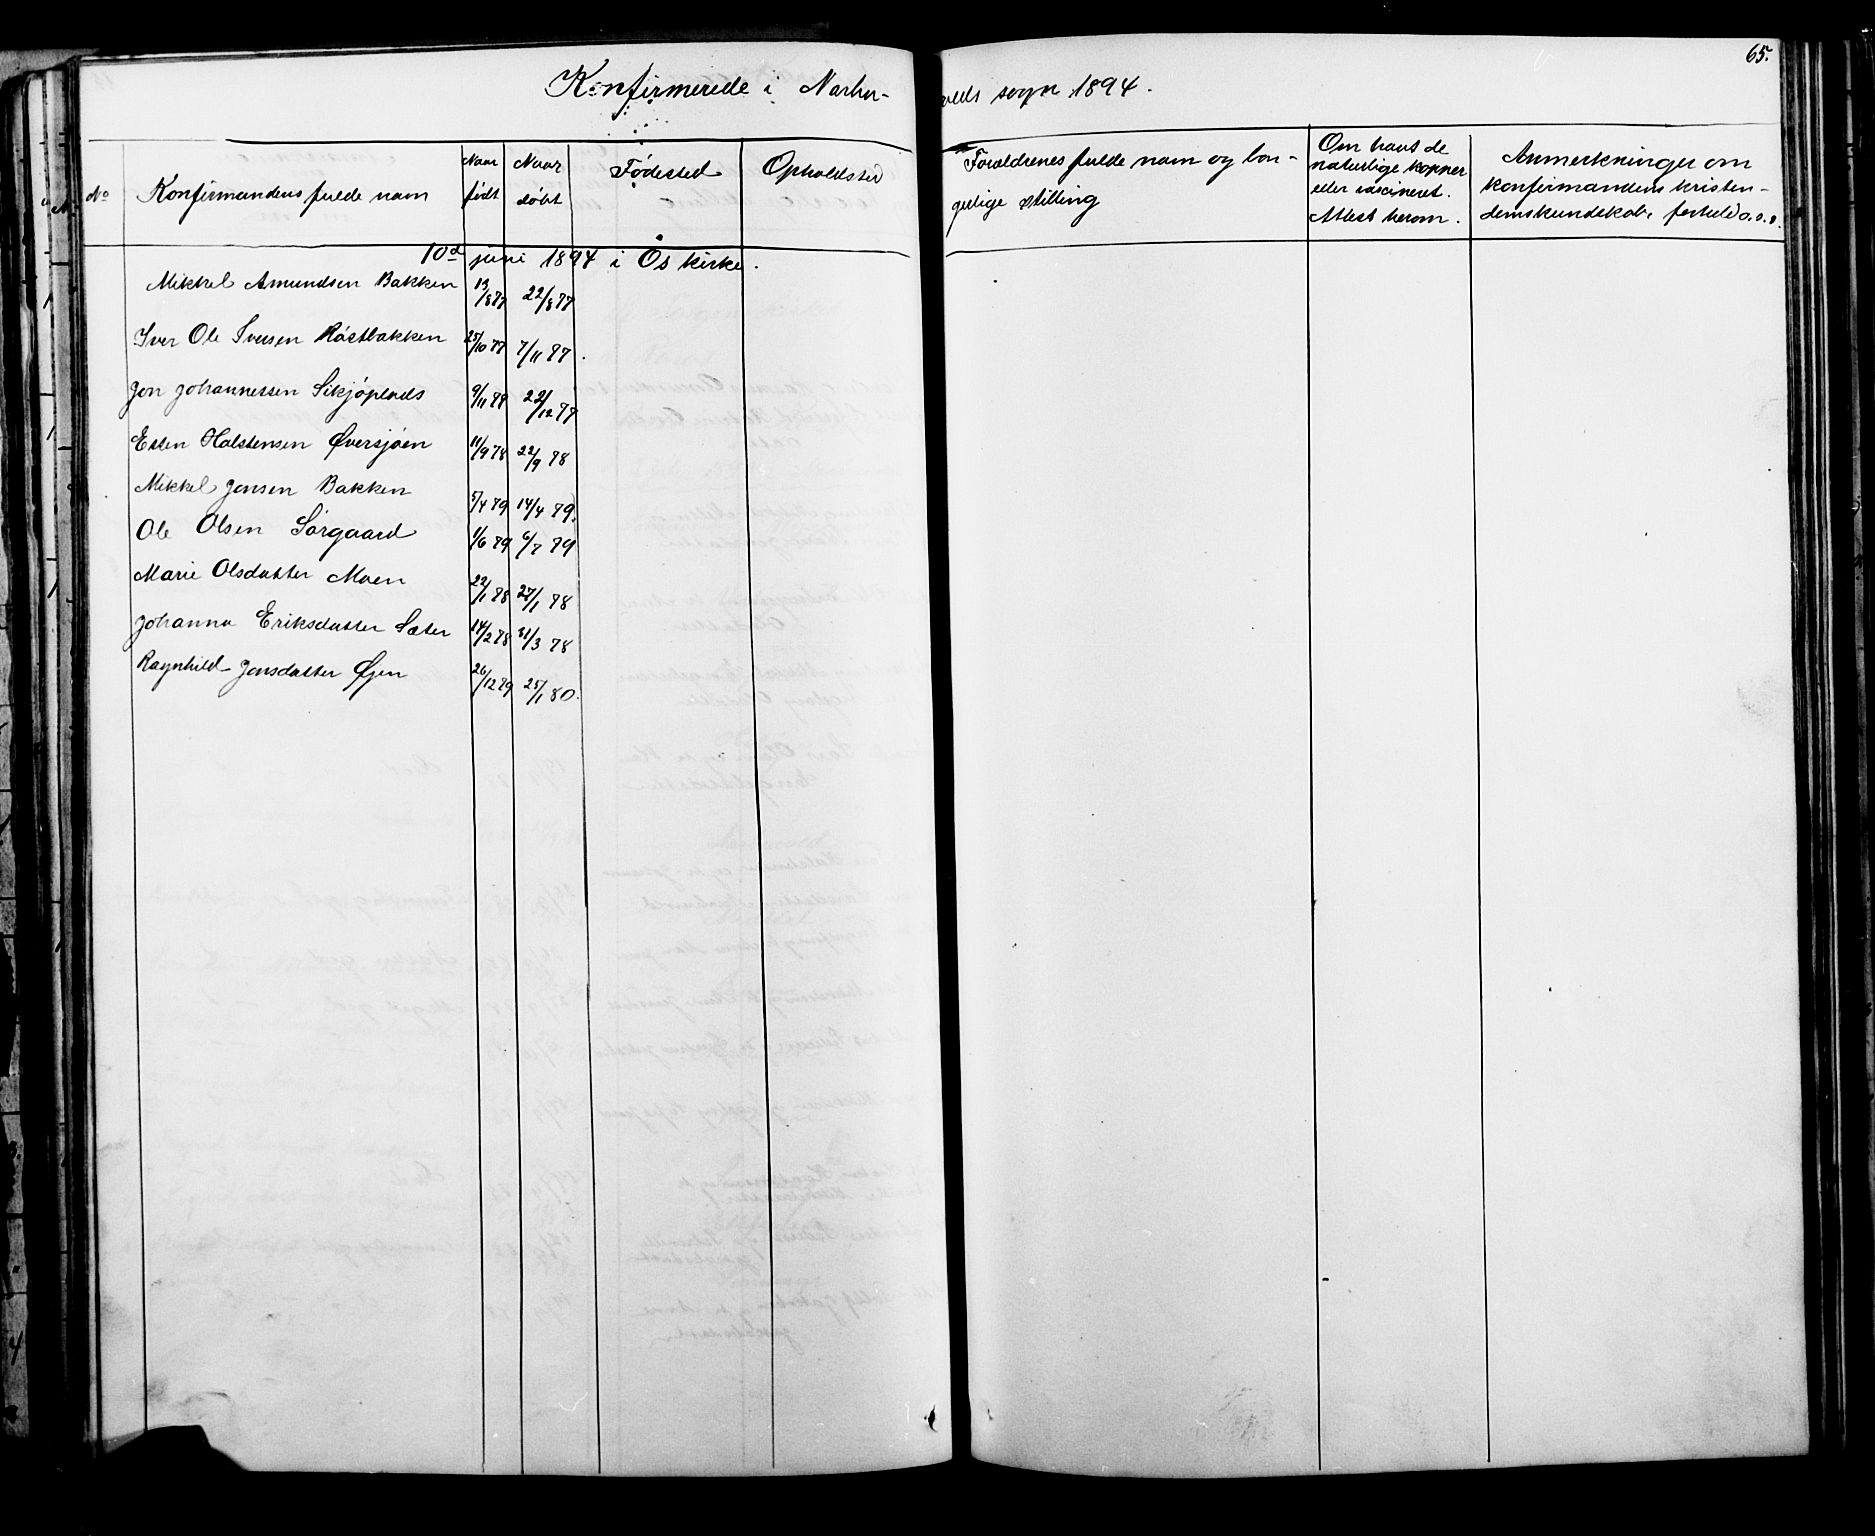 65.
Konfirmerede i Narbu-
volds sogn 1894.
No
Konfirmandens fulde navn
Naar født
Naar døbt
Fødested
Opholdsted
Forældrenes fulde navn og bor-
gerlige stilling
Om havt de
naturlige kopper
eller vaccineret.
Attest herom.
Anmerkninger om
konfirmandens kristen-
domskundskab, forhold o.s.v.
10de juni 1894 i Os kirke.
Mikkel Amundsen Bakken 13/8 77 22/8 77
Iver Ole Iversen Røstbakken 25/10 77 7/11 77.
Jon Johannessen Sikjøplads 9/11 77 22/12 77
Esten Halstensen Øversjøen 11/9 78 22/9 78
Mikkel Jonsen Bakken 5/4 79 14/4 79.
Ole Olsen Sørgaard 1/6 79 6/7 79
Marie Olsdatter Moen 22/1 78 27/1 78
Johanna Eriksdatter Sæter 14/2 78 31/3 78
Ragnhild Jonsdatter Øjen 26/12 79 25/1 80.